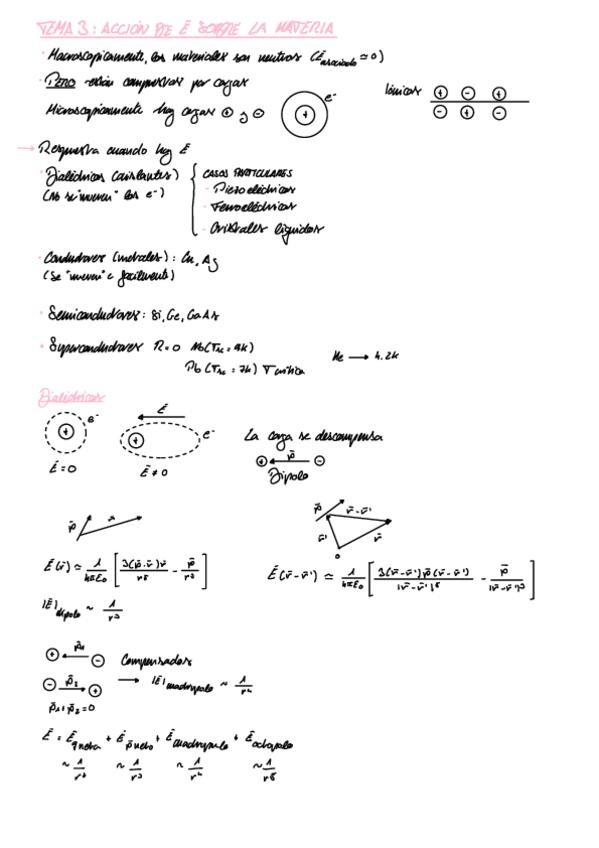 TEMA 3: ACCIÓN DE Ē SOBRE LA MATERIA
· Macroscópicamente, los materiales son neutros (Ē asociado ≃ 0)
· PERO están compuestos por cargas
Microscópicamente hay cargas ⊕ y ⊖
e⁻
+
Iónicos
+ − +
− + −
→ Respuesta cuando hay Ē
· Dieléctricos (aislantes)
(No se "mueven" los e⁻)
CASOS PARTICULARES
· Piezoeléctricos
· Ferroeléctricos
· Cristales líquidos
· Conductores (metales): Cu, Ag
(Se "mueven" fácilmente)
· Semiconductores: Si, Ge, GaAs
· Superconductores R=0 Nb (Tsc = 9k)
Pb (Tsc = 7k) T crítica
He → 4.2k
Dieléctricos
+ e⁻
Ē = 0
Ē
+ e⁻
Ē ≠ 0
La carga se descompensa
+ p̄ −
Dipolo
p̄ r̄
p̄ r̄-r̄'
r̄' r̄
0
Ē(r̄) ≃ 1/4πε₀ [3(p̄·r̄)r̄/r⁵ - p̄/r³]
Ē(r̄-r̄') ≃ 1/4πε₀ [3(r̄-r̄')p̄(r̄-r̄')/|r̄-r̄'|⁵ - p̄/|r̄-r̄'|³]
|Ē|dipolo ~ 1/r³
+ p̄₁ −
− p̄₂ +
p̄₁+p̄₂=0
Compensados
→ |Ē|cuadrupolo ~ 1/r⁴
Ē = Ē q neta + Ē p̄ neto + Ē cuadrupolo + Ē octupolo
~ 1/r² ~ 1/r³ ~ 1/r⁴ ~ 1/r⁵